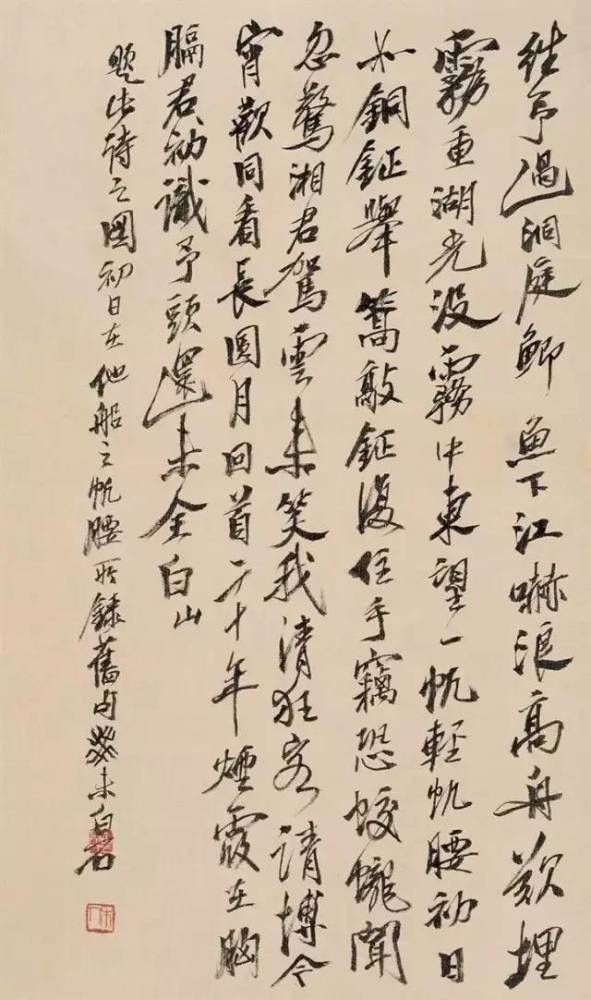 往予過洞庭鯽魚下江嚇浪高舟欲埋
霧重湖光没霧中東望一帆輕帆腰初日
如銅鉦舉篙敲鉦復住手竊恐蛟龍聞
忽驚湘君駕雲來笑我清狂客請博今
宵歡同看長圓月回首二十年煙霞在胸
膈君初識予頭還未全白山
題此詩之圖初日在他船之帆腰所錄舊句癸未白石